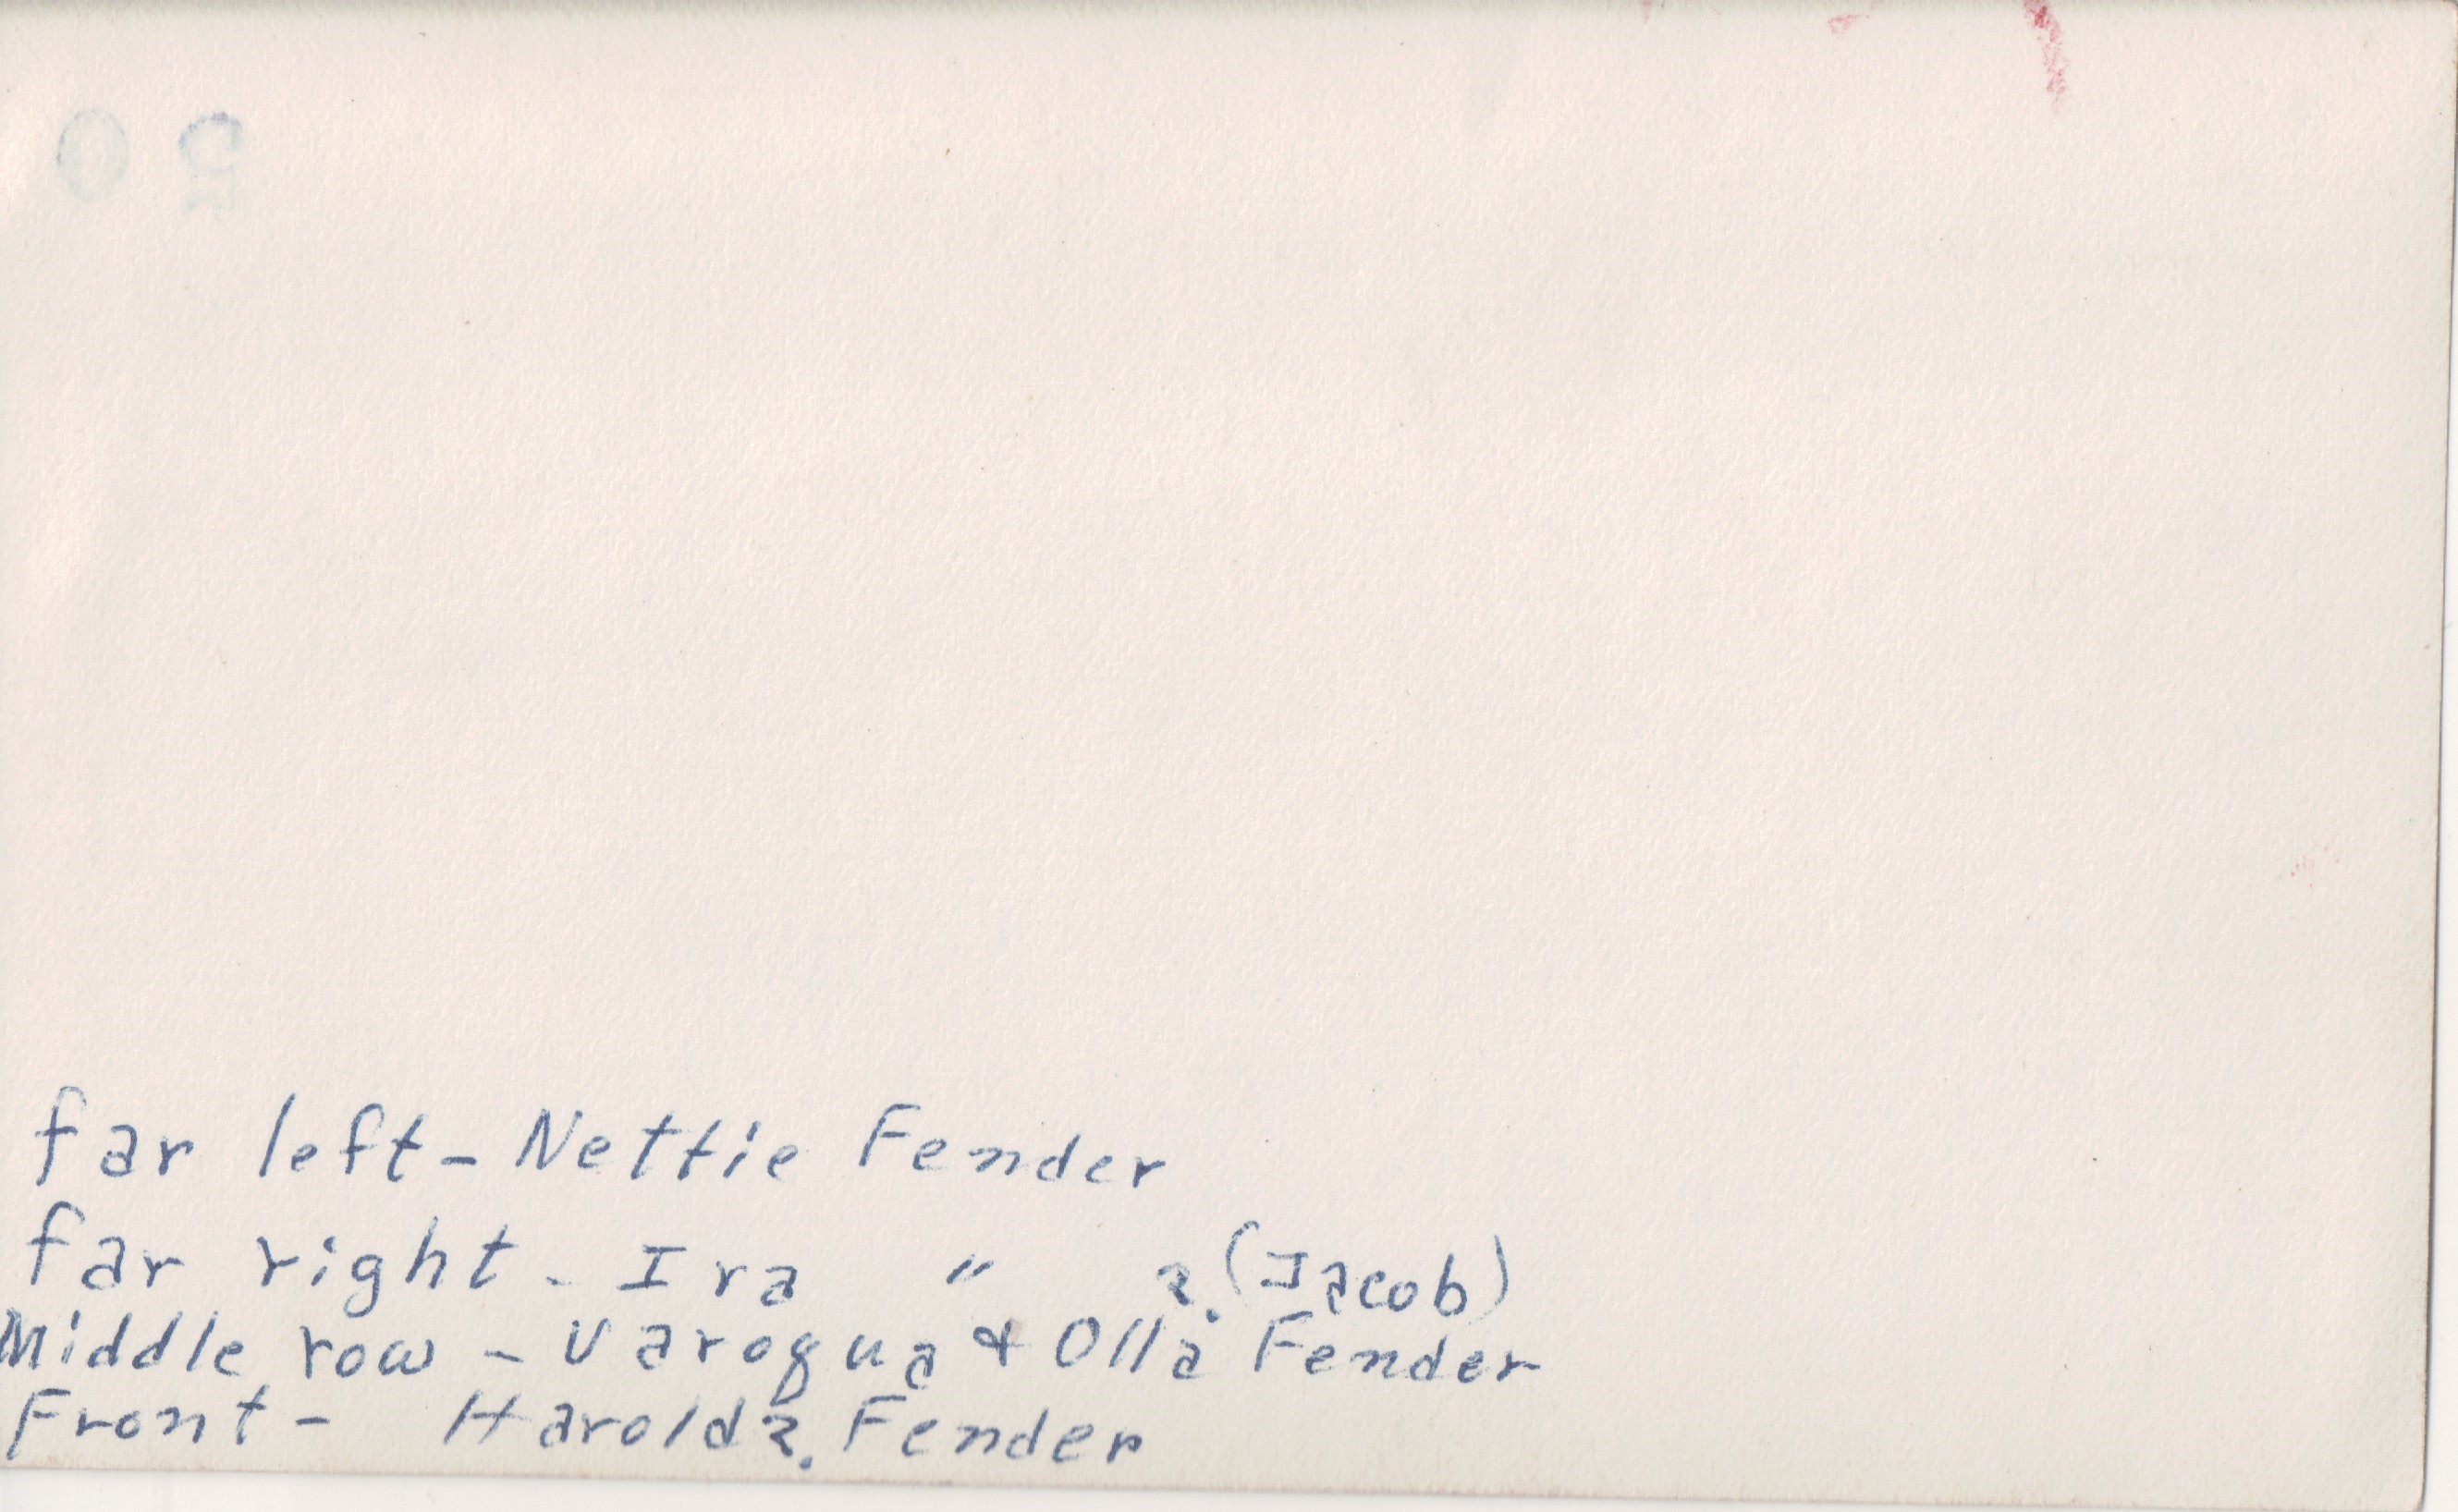 20
far left - Nettie Fender
far right - Ira " ? (Jacob)
Middle row - Varoqua & Olla Fender
Front - Harold ? Fender